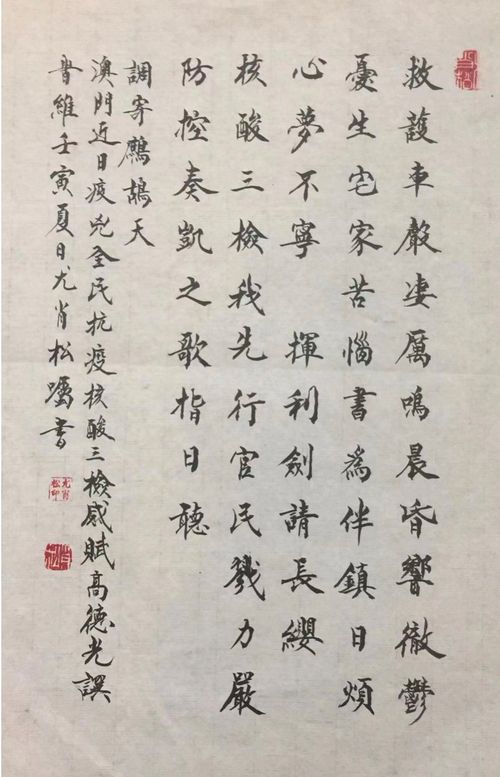 救護車聲淒厲鳴晨昏響徹鬱
憂生宅家苦惱書為伴鎮日煩
心夢不寧 揮利劍請長纓
核酸三檢我先行官民戮力嚴
防控奏凱之歌指日聽
調寄鷓鴣天
澳門近日疫兇全民抗疫核酸三檢感賦高德光譔
書維壬寅夏日尤肖松囑書